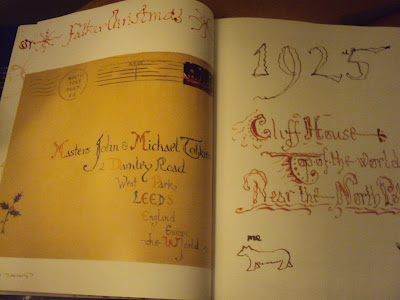 Father Christmas
Masters John & Michael Tolkien
2 Darnley Road
West Park
LEEDS
England
Europe
the World
1925
Cliff House
Top of the world
Near the North Pole
me